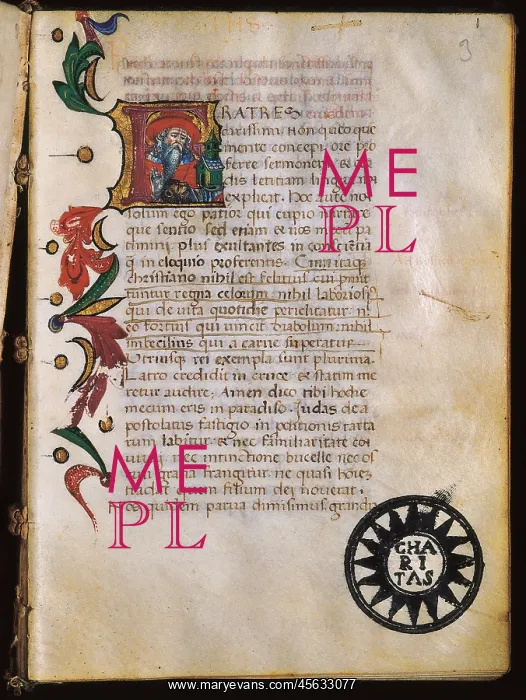 3
1
RATRES
carissimi. Non queo que
mente concepi. ore pro
ferre sermonem &
dis letitiam
explicit. hoc aute no
solum ego patior qui cupio narrare
que sentio sed etiam & nos mecu pa
timini plus exultantes in conscientia
q in eloquio proferentis. Cum itaq
christiano nihil est felicius cui pmit
tuntur regna celorum. nihil laboriosi9
qui de vita quotidie periclitatur. ni
eo fortius qui vincit diabolum. nihil
imbecilius qui a carne superatur
Utriusq rei exempla sunt plurima.
Latro credidit in cruce & statim me
retur audire. Amen dico tibi hodie
mecum eris in paradiso. Judas de a
postolatus fastigio in perditionis tarta
rum labitur. & nec familiaritate con
vivii. nec intinctione bucelle nec os
gratia frangitur ne quasi homi
filium dei noverat.
parva dimisimus. grandia
CHA
RI
TAS
ME
PL
ME
PL
www.maryevans.com/45633077